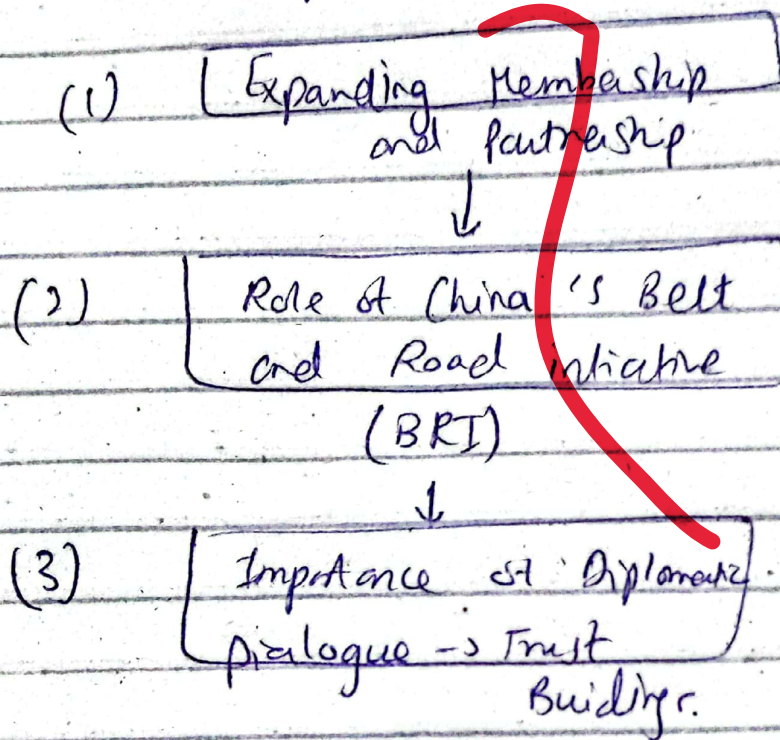 (1) Expanding Membership
and Partnership
↓
(2) Role of China's Belt
and Road intiative
(BRI)
↓
(3) Importance of Diplomatic
Dialogue → Trust
Buidings.